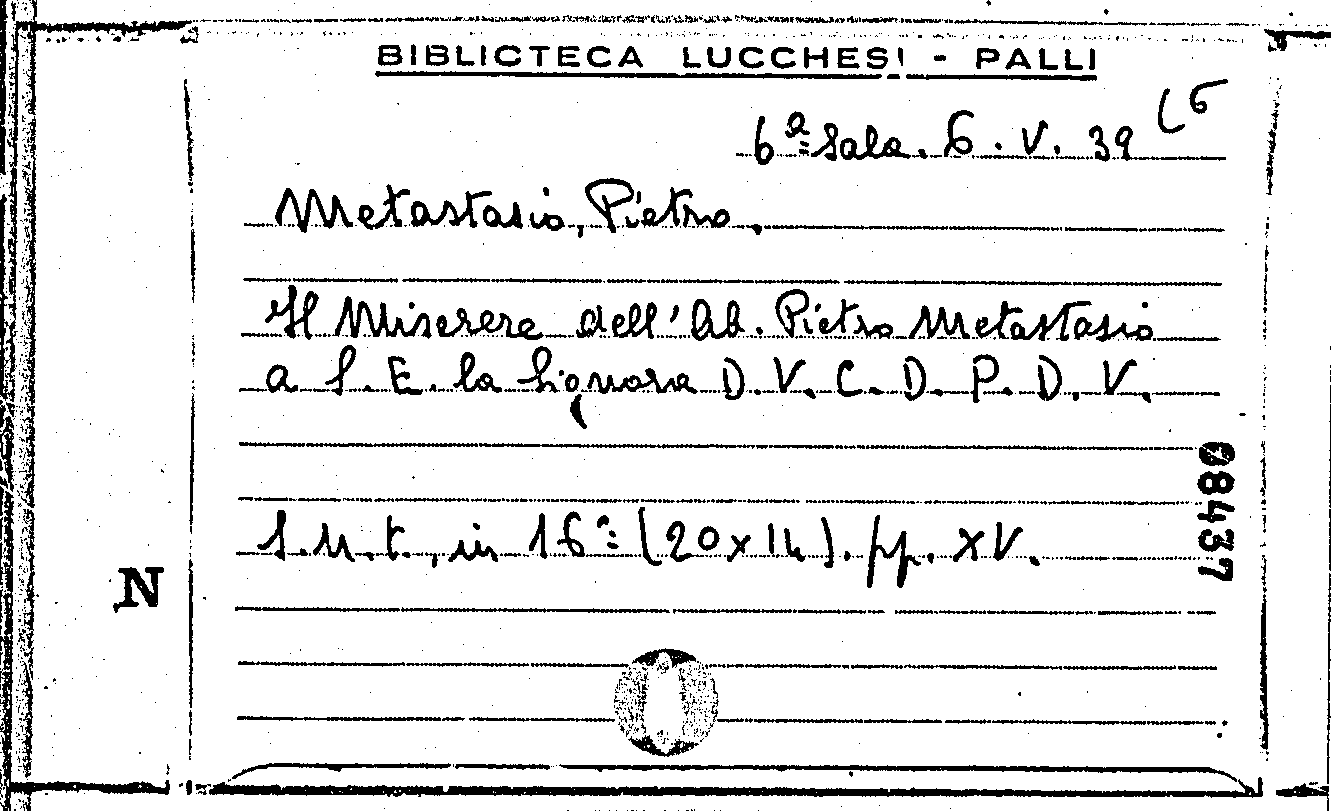 BIBLIOTECA LUCCHESI - PALLI
6ª Sala. 6. V. 39 (5
Metastasio, Pietro.
Il Miserere dell'Ab. Pietro Metastasio
a S. E. la Signora D. V. C. D. P. D. V.
S.n.t., in 16º (20x14). pp. XV.
08437
N